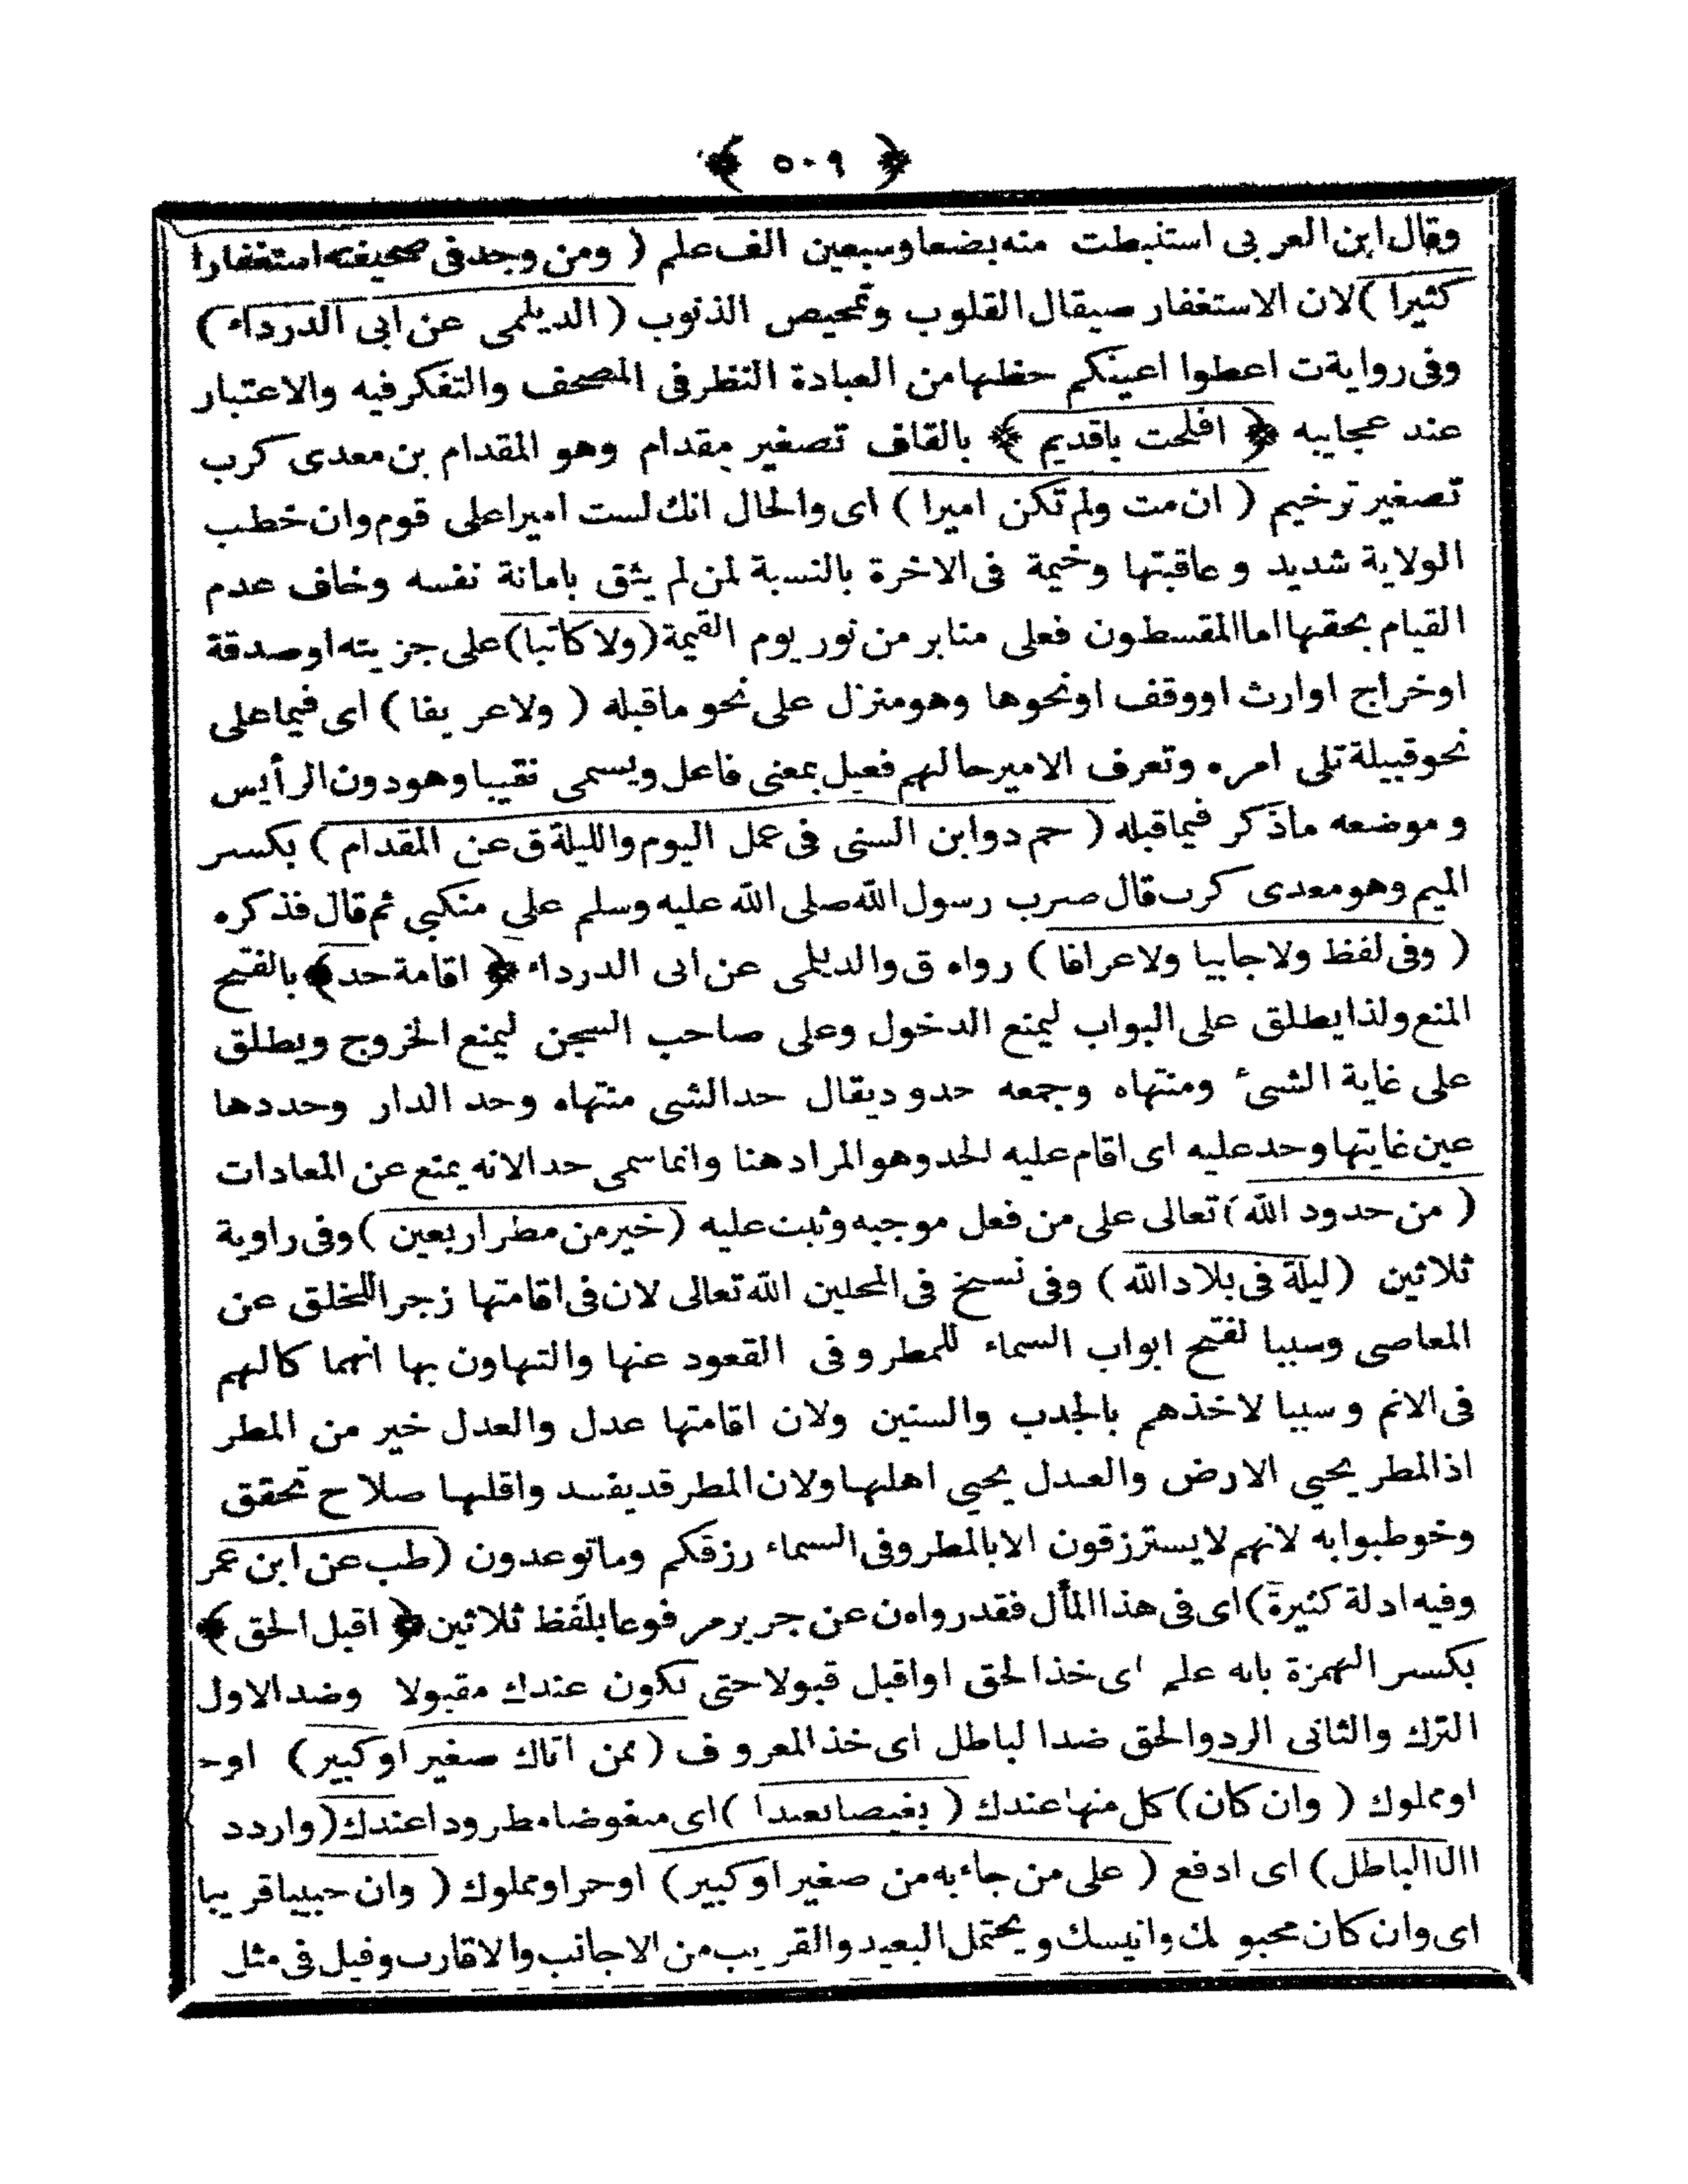 ﴿ ٥٠٩ ﴾
وقال ابن العربى استنبطت منه بضعا وسبعين الف علم ( ومن وجد فى صحيفته استغفارا
كثيرا ) لان الاستغفار صيقال القلوب وتمحيص الذنوب ( الديلمى عن ابى الدرداء )
وفى رواية ت اعطوا اعينكم حظها من العبادة النظر فى المصحف والتفكر فيه والاعتبار
عند عجايبه ﴿ افلحت ياقديم ﴾ بالقاف تصغير مقدام وهو المقدام بن معدى كرب
تصغير ترخيم ( ان مت ولم تكن اميرا ) اى والحال انك لست اميرا على قوم وان خطب
الولاية شديد و عاقبتها وخيمة فى الاخرة بالنسبة لمن لم يثق بامانة نفسه وخاف عدم
القيام بحقها اما المقسطون فعلى منابر من نور يوم القيمة ( ولا كاتبا ) على جزيته او صدقة
او خراج اوارث او وقف او نحوها وهو منزل على نحو ماقبله ( ولاعريفا ) اى فيما على
نحو قبيلة تلى امره وتعرف الامير حالهم فعيل بمعنى فاعل ويسمى نقيبا وهو دون الرأيس
و موضعه ماذكر فيما قبله ( حم د وابن السنى فى عمل اليوم والليلة ق عن المقدام ) بكسر
الميم وهو معدى كرب قال ضرب رسول الله صلى الله عليه وسلم على منكبى ثم قال فذكره
( وفى لفظ ولا جابيا ولا عرافا ) رواه ق والديلمى عن ابى الدرداء ﴿ اقامة حد ﴾ بالفتح
المنع ولذا يطلق على البواب ليمنع الدخول وعلى صاحب السجن ليمنع الخروج ويطلق
على غاية الشىء ومنتهاه وجمعه حدود يقال حد الشى منتهاه وحد الدار وحددها
عين غايتها وحد عليه اى اقام عليه الحد وهو المراد هنا وانما سمى حدا لانه يمنع عن المعادات
( من حدود الله ) تعالى على من فعل موجبه وثبت عليه ( خير من مطر اربعين ) وفى راوية
ثلاثين ( ليلة فى بلاد الله ) وفى نسخ فى المحلين الله تعالى لان فى اقامتها زجرا للخلق عن
المعاصى وسببا لفتح ابواب السماء للمطر وفى القعود عنها والتهاون بها انهما كالهم
فى الاثم وسببا لاخذهم بالجدب والسنين ولان اقامتها عدل والعدل خير من المطر
اذ المطر يحيى الارض والعدل يحيى اهلها ولان المطر قد يفسد واقلها صلاح تحقق
وخوطبوا به لانهم لا يسترزقون الا بالمطر وفى السماء رزقكم وما توعدون ( طب عن ابن عمر
وفيه ادلة كثيرة ) اى فى هذا المأل فقد رواه ن عن جرير مرفوعا بلفظ ثلاثين ﴿ اقبل الحق ﴾
بكسر الهمزة بابه علم اى خذ الحق او اقبل قبولا حتى تكون عندك مقبولا وضد الاول
الترك والثانى الرد والحق ضد الباطل اى خذ المعروف ( ممن اتاك صغير او كبير ) اوح
او مملوك ( وان كان ) كل منها عندك ( بغيضا بعيدا ) اى مبغوضا مطرودا عندك ( واردد
الباطل ) اى ادفع ( على من جاء به من صغير او كبير ) او حر او مملوك ( وان حبيبا قريبا
اى وان كان محبو لك وانيسك ويحتمل البعيد والقريب من الاجانب والاقارب وقيل فى مثل